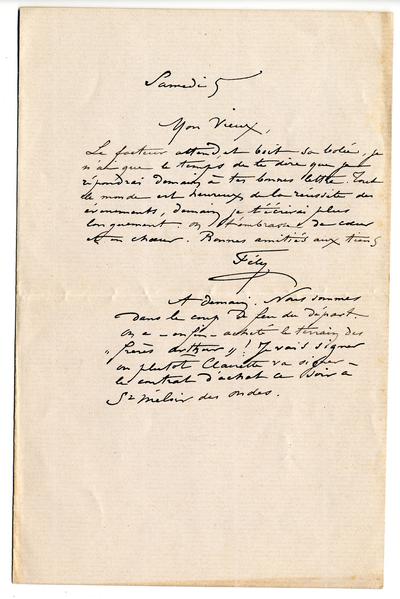 Samedi 5
Mon Vieux,
Le facteur attend, et boit sa bolée, je
n'ai que le temps de te dire que je
répondrai demain à tes bonnes lettre. Tout
le monde est heureux de la réussite des
évènements, demain je t'écrirai plus
longuement on t'embrasse de cœur
et en chœur. Bonnes amitiés aux tiens
Fély
A demain. Nous sommes
dans le coup de feu du départ
on a - enfin - acheté le terrain des
"frères Arthur"! Je vais signer
ou plutôt Clairette va signer -
le contrat d'achat ce soir à
St Méloir des ondes.